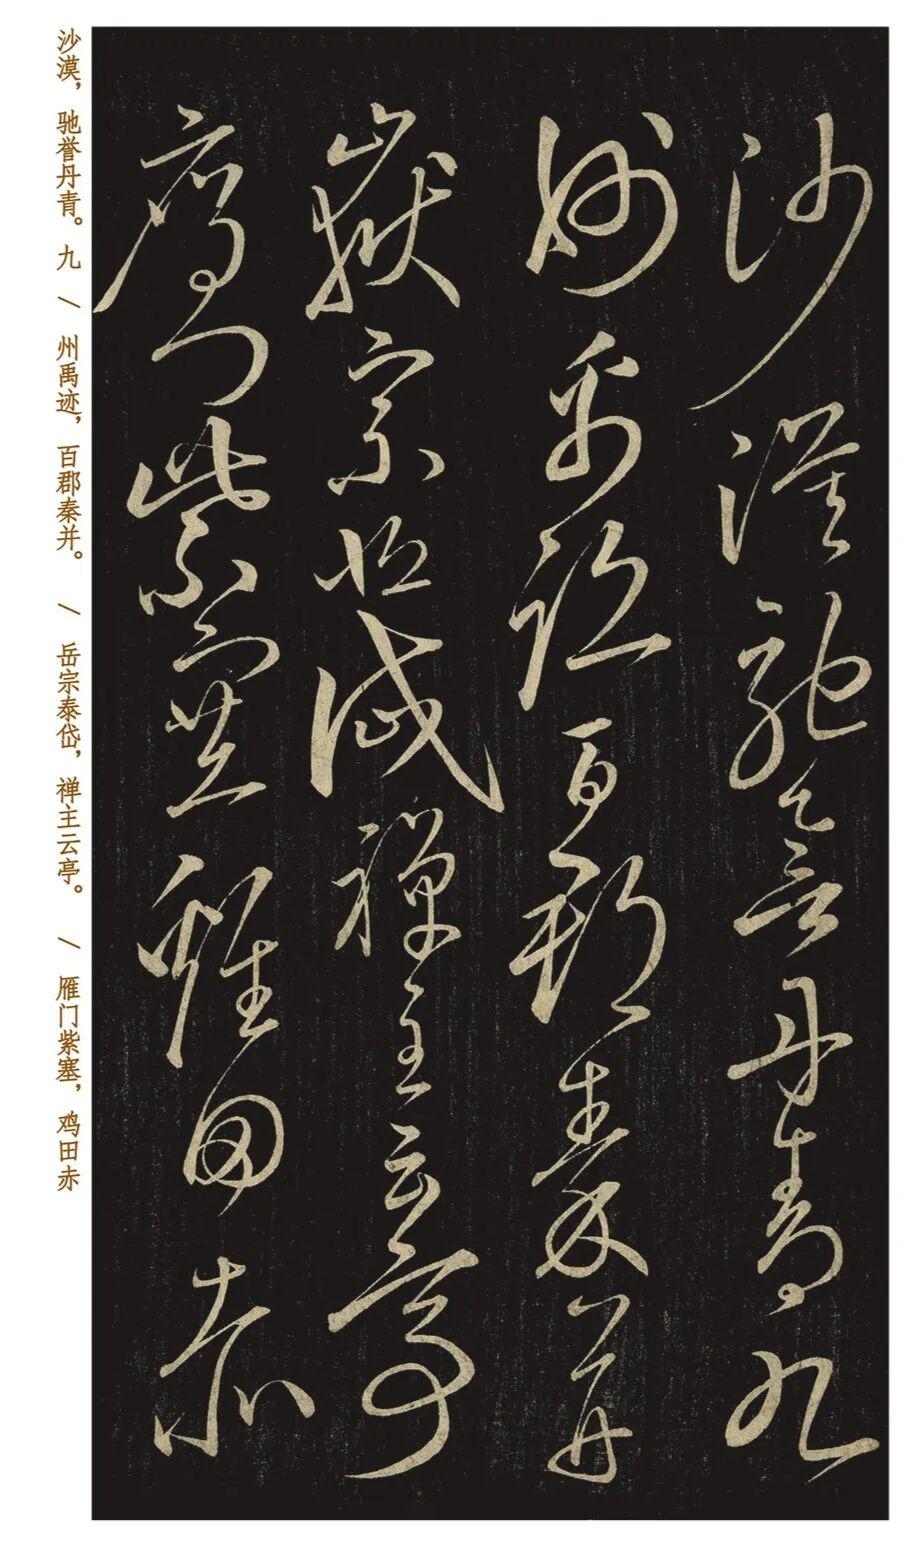 沙漠馳譽丹青九
州禹跡百郡秦并
嶽宗恒岱禪主云亭
雁門紫塞雞田赤
沙漠，驰誉丹青。九 / 州禹迹，百郡秦并。 / 岳宗泰岱，禅主云亭。 / 雁门紫塞，鸡田赤